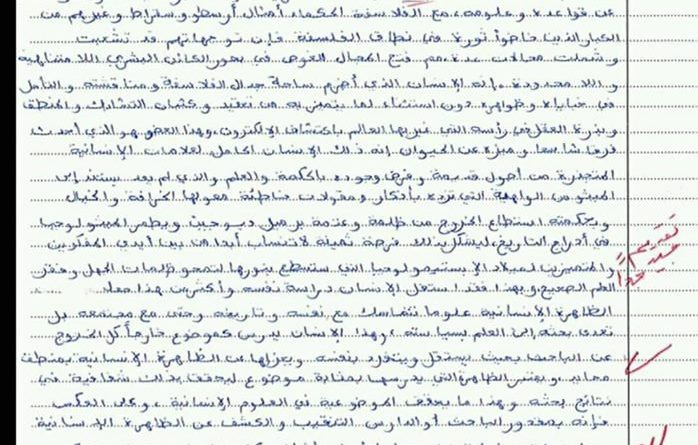 عن قواعده وعلومه، مع الفلاسفة الحكماء أمثال أرسطو وسقراط وغيرهم من
الكبار الذين خاضوا ثورة في نطاق الفلسفة فإن توجهاتهم قد تشعبت
وشملت مجالات عدة، مع فتح المجال الغوص في بحور الكائن البشري اللا متناهية
و اللا محدودة. إنه الإنسان الذي أضرم ساحة جدال الفلاسفة ومناقشته والتأمل
في خباياه وظواهره دون استثناء لما يتميز به من تعقيد و التشابك والمنطق
وبنرة العقل في رأسه التي غير بها العالم باكتشاف الإلكترون، وهذا العضو هو الذي أحدث
فرقا شاسعا وميزه عن الحيوان إنه ذلك الإنسان الحامل لعلامات الإنسانية
المتجذرة من أصول قديمة وفرض وجوده بالحكمة والعلم والذي لم يعد يستند إلى
الميثوس الواهية التي تزوده بأفكار ومقولات خاطئة معولها الخرافة والخيال
وبحكمته استطاع الخروج من ظلمة وعتمة برميل ديوجين ويطمر الميثولوجيا
في أدراج التاريخ، ليشكل بذلك فرصة ثمينة لا تنساب أبدا من بين أيدي المفكرين
والمتميزين لميلاد الإبستيمولوجيا التي ستسطع بنورها لتمحو ظلمات الجهل وفق
العلم الصحيح، وبهذا فقد استغل الإنسان دراسة نفسه وأكثر من هذا جعل
الظاهرة الإنسانية علوما تتماسك مع نفسه وتاريخه وحتى مع مجتمعه بل
تعدى بحثه إلى العلم بسياسته، وهذا الإنسان يدرس كموضوع خارجا كل الخروج
عن الباحث بحيث يستقل وينفرد بنفسه ويعزلها عن الظاهرة الإنسانية بمنطق
محايد و يعتبر الظاهرة التي يدرسها بمثابة موضوع ليحقق بذلك شفافية في
نتائج بحثه وهذا ما يحقق الموضوعية في العلوم الإنسانية، وعلى العكس
فإنه بمقدور الباحث أو الدارس التنقيب والكشف عن الظاهرة الإنسانية
تقديم
جيد جدا